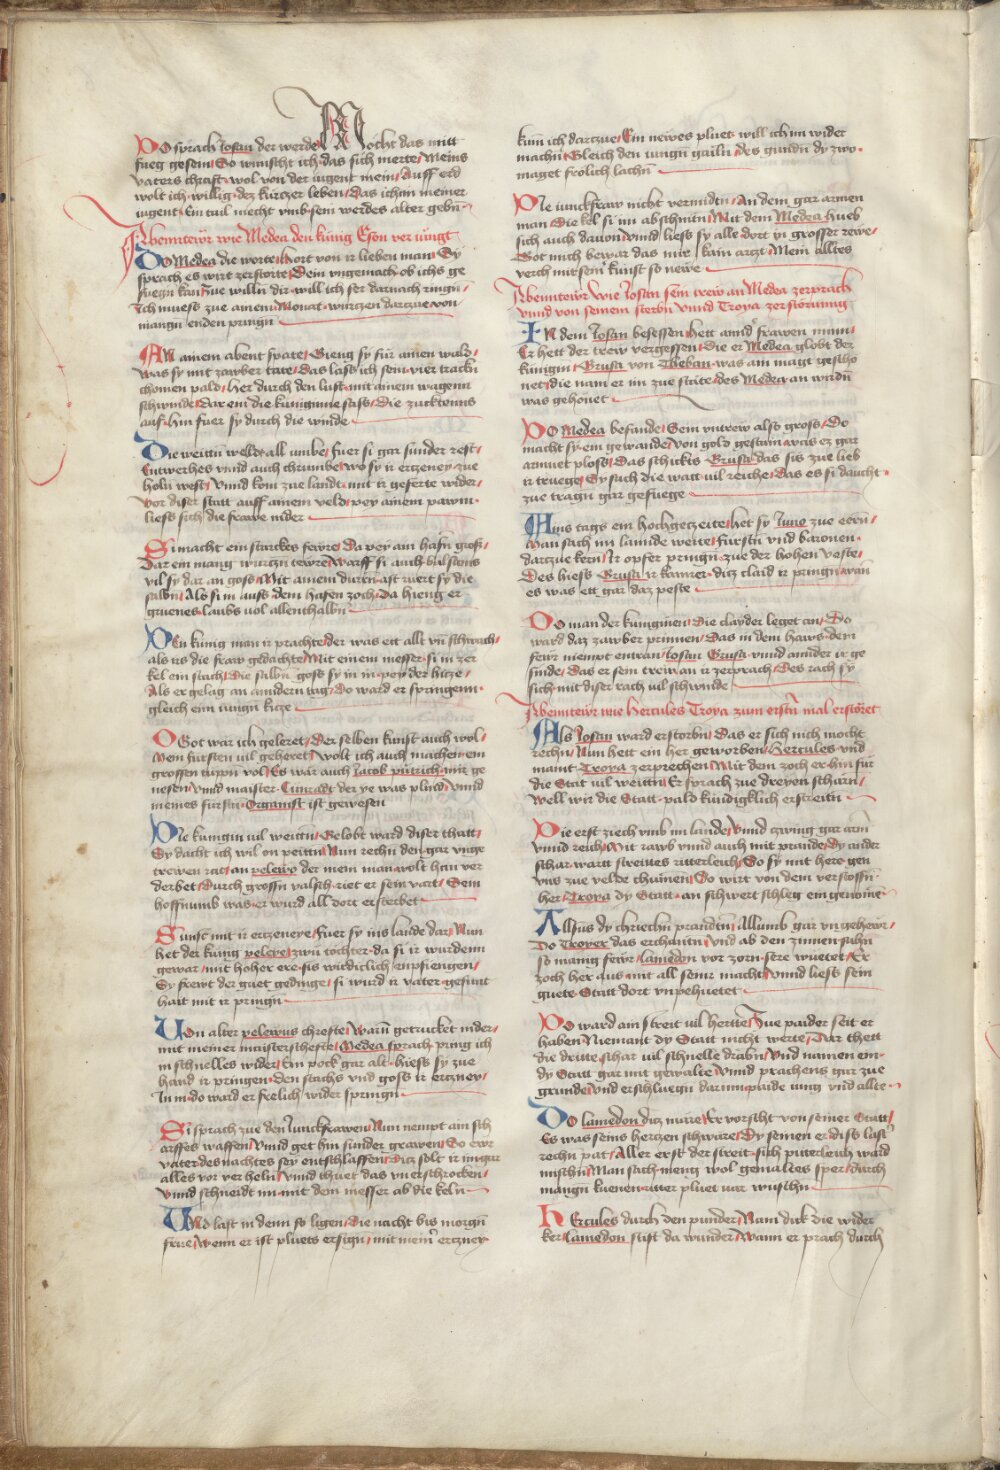 Do sprach Josan der werde Mocht das mitt
fueg gesein So wunscht ich das sich merte Meins
vaters chrafft wol von der iugent mein Auff erd
wolt ich willig dez kurczer leben Das ich im meiner
iugent Ein tail mecht vmb sein werdes alter gebn
Abenntewr wie Medea den kunig Eson ver iungt
Do Medea die worte hort von ir lieben man Sy
sprach es wirt zerstorte Dein vngemach ob ichs ge
fuegn kan Zue willn dir will ich ser darnach ringn
Ich muess zue amem Monat wurczen darzue von
mangn enden pringn
An ainem abent spate Gieng sy fur ainen wald
Was sy mit zawber tate das lass ich sein vier trackn
chomen pald Her durch den lufft mit ainem wagenn
schwinde Dar ein die kuniginne sass Die zucktenns
auf hin fuer sy durch die winde
Die weittn weldt all umbe fuer si gar sunder rest
Entwerhes vnnd auch chrumbe wo sy ir ertzeney zue
holn west Vnnd kom zue landt mit ir geferte wider
Vor diser statt auff ainem veld pey ainem pawm
liess sich die frawe nider
Si macht ein starckes fewre Da pey ain hafn gross
Dar ein mang wurczn tewre warff si auch hulstens
vil sy dar an goss Mit ainem durrn ast ruert sy die
salbn Als si in auss dem hafen zoch Da hieng er
gruenes laubs vol allenthalbn
Den kunig man ir prachte der was ett allt vn schwach
als us die fraw gedachte Mit einem messer si in zer
kel ein stach Die salbn goss sy in in pey der hicze
Als er gelag an anndern tag Do ward er springenn
gleich einn iungn kicze
O Got war ich geleret Der selben kunst auch wol
Mein fursten vil geheret wolt ich auch machen ein
grossen turpn vol Es war auch Jacob putrich mir ge
nesen vnnd maister Cunradt der ye was plind vnnd
meines fursn Organist ist gewesen
Die kunigin vil weittn Gelobt ward diser thatt
Sy dacht ich wil on peittn Nun rechn den gar vnge
trewen rat an peleus der mein man wolt han ver
derbet Durch grossn valsch riet er sein vart Sein
hoffnunb was er wurd all dort ersterbet
Sunst mit ir erczeneye fuer sy ins lande dar Nun
het der kunig peleye zwu tochter da si ir wurdenn
gewar mit hoher ere sis wirdiclich enpfiengen
Sy frewt der guet gedinge si wurd ir vater gesunt
hait mit ir pringn
Von alter pelewus chrefte Warn getrucket nider
mit meiner maisterschefte Medea sprach pring ich
in schnelles wider Ein pock gar alt hiess sy zue
hand ir pringen den stachs vnd goss ir erczney
In in do ward er frelich wider springn
Si sprach zue den Junckfrawen Nun nempt ain sch
arffes waffen Vnnd get hin sunder grawen So ewr
vater des nachtes sey entschlaffen Dicz solt ir im gar
alles vor ver heln vnnd thuet das vnerschrocken
Vnnd schneidt im mit dem messer ab die keln
Und last in denn so ligen die nacht bis morgn
frue Wenn er ist pluets ersign mit meinr erczney
kum ich darzue Ein newes pluet will ich im wider
machn Gleich den iungn gailn des gundn dy zwo
maget frolich lachn
Die iunckfraw nicht vermidtn An dem gar armen
man Die kel si im abschnittn Mit dem Medea hueb
sich auch davon vnnd liess sy alle dort in grosser rewe
Got mich bewar das mir kain arzt Mein alltes
verch mit seinr kunst so newe
Abenntewr wie Josan sein trew an Medea zerprach
vnnd von seinem sterbn vnnd Troya zerstorunng
In dem Josan besessen hett annd frawen minn
Er hett der trew vergessen die er Medea globt der
kunigin Grusa von Theban was ain magt gescho
net die nam er im zue staite des Medea an wirdn
was gehonet
Do Medea befande Sein vntrew also gross Do
macht sy ein gewande von gold gestain was ez gar
armuet ploss Das schickts Grusa das sis zue lieb
ir truege Sy such die watt vil reiche das es si daucht
zue tragn gar gefuege
Ains tags ein hochgezeite het sy Juno zue eern
Man sach im lannde weite fursten vnd baronen
darzue kern Ir opfer pringn zue der hohen veste
Des hiess Grusa ir kamrer dicz claid ir pringn wan
es was ett gar daz peste
Do man der kuniginen die clayder leget an Do
ward daz zawber prinnen Das in dem haws dem
fewr niempt entran Josan Grusa vnnd annder ir ge
sinde das er sein trew an ir zerprach Des rach sy
sich mit diser rach vil schwinde
Abenntewr wie Hercules Troya zum erstn mal erstoret
Als Josan ward erstorbn Das er sich nich mocht
rechn Nun hett ein her geworben Hercules vnd
maint Troya zerprechen Mit dem zoch er hin fur
die Stat vil weittn Er sprach zue dreyen scharn
Well wir die Statt pald kundigklich erstreitn
Die erst ziech vmb im lande Vnnd zwing gar arm
vnnd reich Mit rawb vnnd auch mit prande Dy ander
schar wartt streittes ritterleich So sy mit here gen
vns zue velde chumen So wirt von dem verstossn
her Troya dy Statt an schwert schleg ein genome
Allsus dy chriechn prandtn Allumb gar vngehewr
Do Troyer das erchantn Vnd ab den zinnen sahn
so manig fewr Lamedon vor zorn sere wuetet Er
zoch her aus mit all seinr macht vnnd liess sein
guete Statt dort vnpehuetet
Do ward ain streit vil hertte Zue paider seit er
haben Niemant dy Statt nicht werte Dar thett
die dritte schar vil schnelle drabn Vnd namen ein
dy Statt gar mit gewalte vnnd prachens gar zue
grunde vnd erschluegn darinn paide iung vnd allte
Do Lamedon dicz mare Er vorscht von seiner Statt
Es was seins hertzen schware Dy seinen er disb last
rechn pat Aller erst der streit sich pitterleich ward
mischn Man sach meng wol gemaltes sper durch
mangn kuenen ritter pluet var wischn
Hercules durch den punder Nam dick die wider
ker Lamedon stift da wunder Wann er prach durch